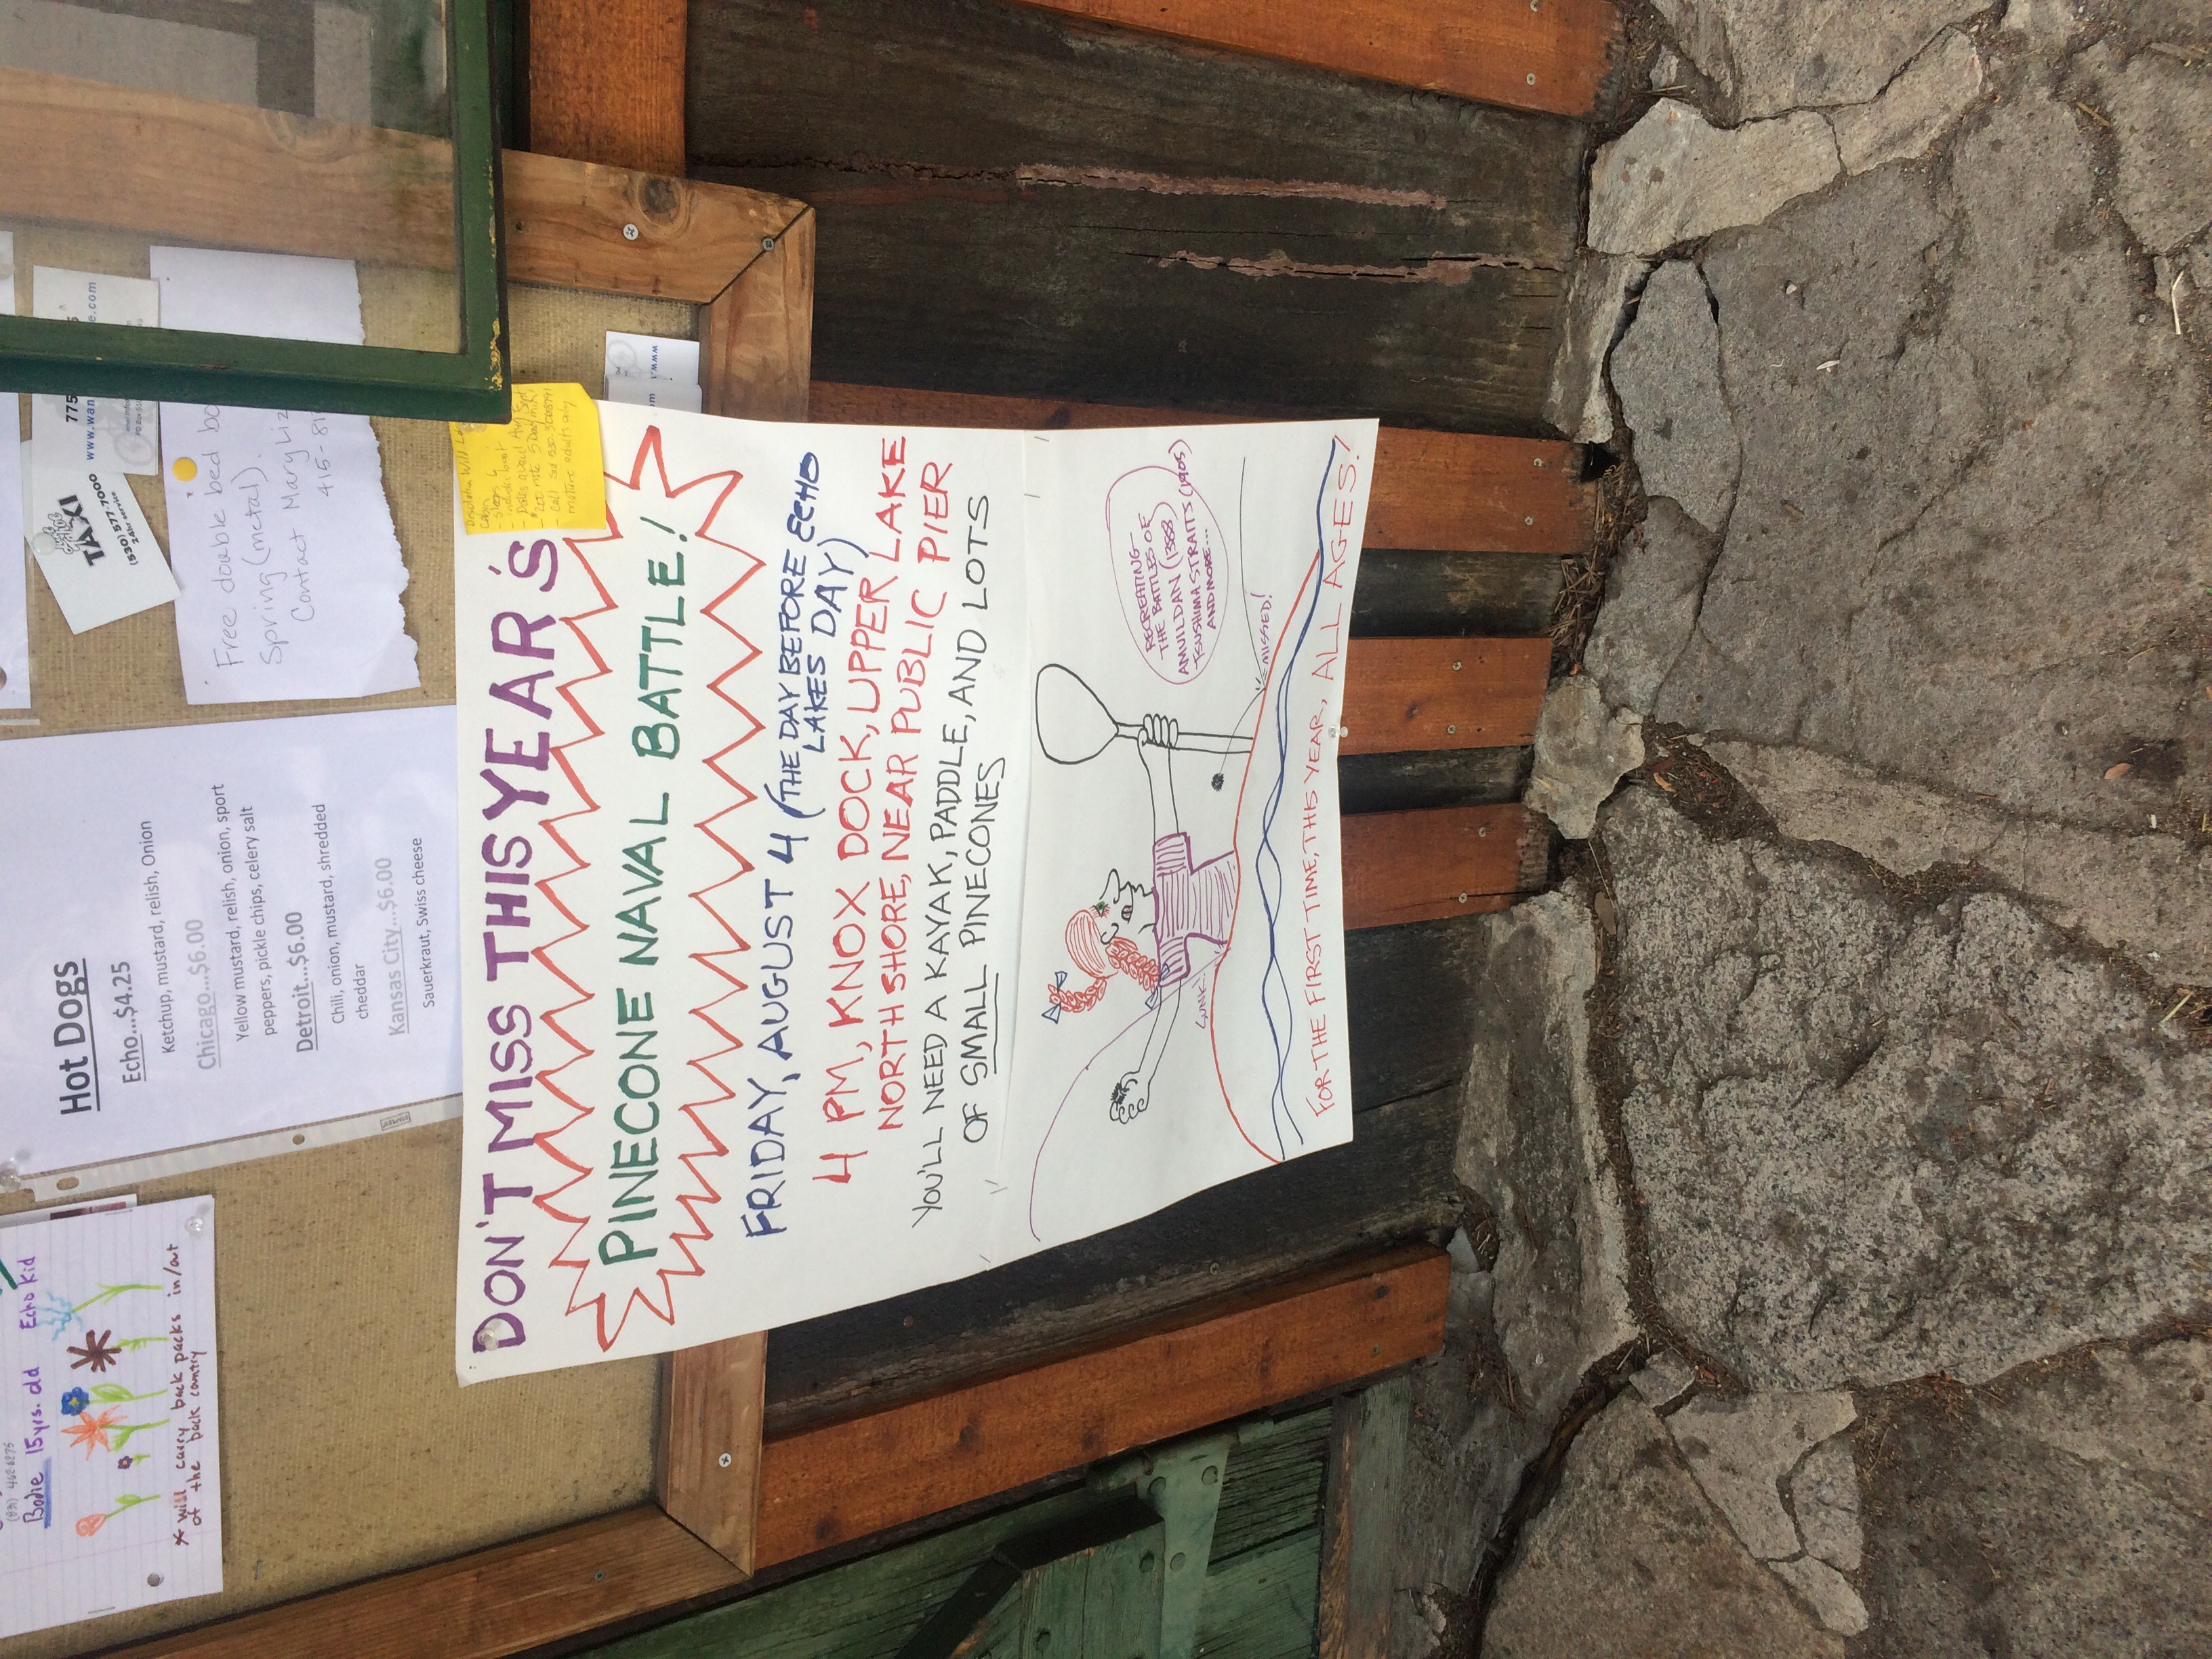 DON'T MISS THIS YEAR'S
PINECONE NAVAL BATTLE!
FRIDAY, AUGUST 4 (THE DAY BEFORE ECHO
LAKES DAY)
4 PM, KNOX DOCK, UPPER LAKE
NORTH SHORE, NEAR PUBLIC PIER
YOU'LL NEED A KAYAK, PADDLE, AND LOTS
OF SMALL PINECONES
RECREATING-
THE BATTLES OF
AMUILDAN (1388)
TSUSHIMA STRAITS (1905)
AND MORE...
MISSED!
FOR THE FIRST TIME, THIS YEAR, ALL AGES!
Hot Dogs
Echo...$4.25
Ketchup, mustard, relish, Onion
Chicago...$6.00
Yellow mustard, relish, onion, sport
peppers, pickle chips, celery salt
Detroit...$6.00
Chili, onion, mustard, shredded
cheddar
Kansas City...$6.00
Sauerkraut, Swiss cheese
Bodie 15yrs. old Echo Kid
* will carry back packs in/out
of the back country
Free double bed bo
Spring (metal).
Contact Mary Liz
415-81
TAXI
(530) 577-7000
24hr service
775
www.wan
e.com
www.
cabin
- Sleeps 4
- includes boat
mature adults only